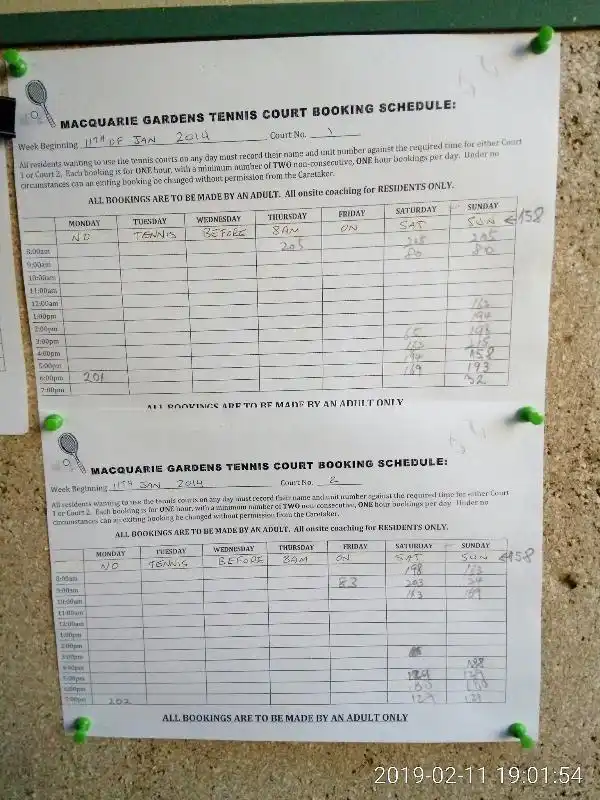 MACQUARIE GARDENS TENNIS COURT BOOKING SCHEDULE:
Week Beginning 11TH OF JAN 2014 Court No. 1
All residents wanting to use the tennis courts on any day must record their name and unit number against the required time for either Court
1 or Court 2. Each booking is for ONE hour, with a minimum number of TWO non-consecutive, ONE hour bookings per day. Under no
circumstances can an exiting booking be changed without permission from the Caretaker.
ALL BOOKINGS ARE TO BE MADE BY AN ADULT. All onsite coaching for RESIDENTS ONLY.
MONDAY TUESDAY WEDNESDAY THURSDAY FRIDAY SATURDAY SUNDAY
NO TENNIS BEFORE 8AM ON SAT SUN ←158
8:00am 205
9:00am 80 80
10:00am
11:00am
12:00am
1:00pm
2:00pm
3:00pm
4:00pm
5:00pm 158
6:00pm 201 193
7:00pm 32
ALL BOOKINGS ARE TO BE MADE BY AN ADULT ONLY
MACQUARIE GARDENS TENNIS COURT BOOKING SCHEDULE:
Week Beginning 11TH JAN 2014 Court No. 2
All residents wanting to use the tennis courts on any day must record their name and unit number against the required time for either Court
1 or Court 2. Each booking is for ONE hour, with a minimum number of TWO non-consecutive, ONE hour bookings per day. Under no
circumstances can an exiting booking be changed without permission from the Caretaker.
ALL BOOKINGS ARE TO BE MADE BY AN ADULT. All onsite coaching for RESIDENTS ONLY.
MONDAY TUESDAY WEDNESDAY THURSDAY FRIDAY SATURDAY SUNDAY
NO TENNIS BEFORE 8AM ON SAT SUN ←158
8:00am 198 163
9:00am 83 203
10:00am 163 159
11:00am
12:00am
1:00pm
2:00pm
3:00pm
4:00pm
5:00pm 129 129
6:00pm
7:00pm 202 129 129
ALL BOOKINGS ARE TO BE MADE BY AN ADULT ONLY
2019-02-11 19:01:54